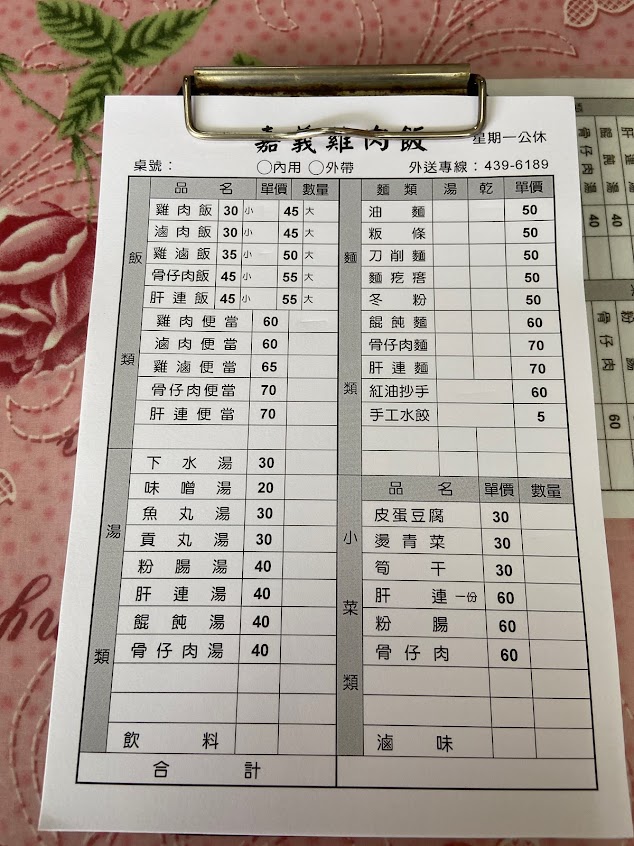 嘉義雞肉飯 星期一公休
桌號： ○內用 ○外帶 外送專線：439-6189
品名 單價 數量
飯類
雞肉飯 30 小 45 大
滷肉飯 30 小 45 大
雞滷飯 35 小 50 大
骨仔肉飯 45 小 55 大
肝連飯 45 小 55 大
雞肉便當 60
滷肉便當 60
雞滷便當 65
骨仔肉便當 70
肝連便當 70
湯類
下水湯 30
味噌湯 20
魚丸湯 30
貢丸湯 30
粉腸湯 40
肝連湯 40
餛飩湯 40
骨仔肉湯 40
飲料
合計
麵類 湯 乾 單價
麵類
油麵 50
粄條 50
刀削麵 50
麵疙瘩 50
冬粉 50
餛飩麵 60
骨仔肉麵 70
肝連麵 70
紅油抄手 60
手工水餃 5
品名 單價 數量
小菜類
皮蛋豆腐 30
燙青菜 30
筍干 30
肝連 一份 60
粉腸 60
骨仔肉 60
滷味
餛飩湯 40
骨仔肉湯 40
骨仔肉 60